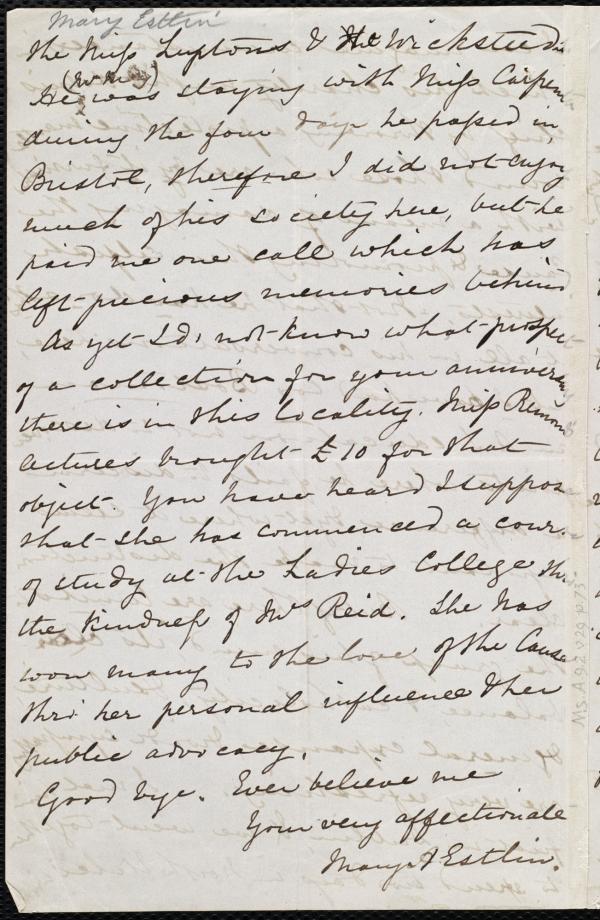 Mary Estlin
the Miss Luptons & the Wicksteeds
(Mr May)
He was staying with Miss Carpen
during the four days he passed in
Bristol, therefore I did not enjoy
much of his society here, but he
paid me one call which has
left precious memories behind
As yet I do not know what prospec
of a collection for your annivers
there is in this locality. Miss Remon
lectures brought £10 for that
object. You have heard I suppos
that she has commenced a cour
of study at the Ladies College thr
the kindness of Mrs Reid. She has
won many to the love of the Cause
thro' her personal influence & her
public advocacy.
Good bye. Ever believe me
Your very affectionate
Mary A Estlin.
Ms. A. 9.2 v. 29 p. 73